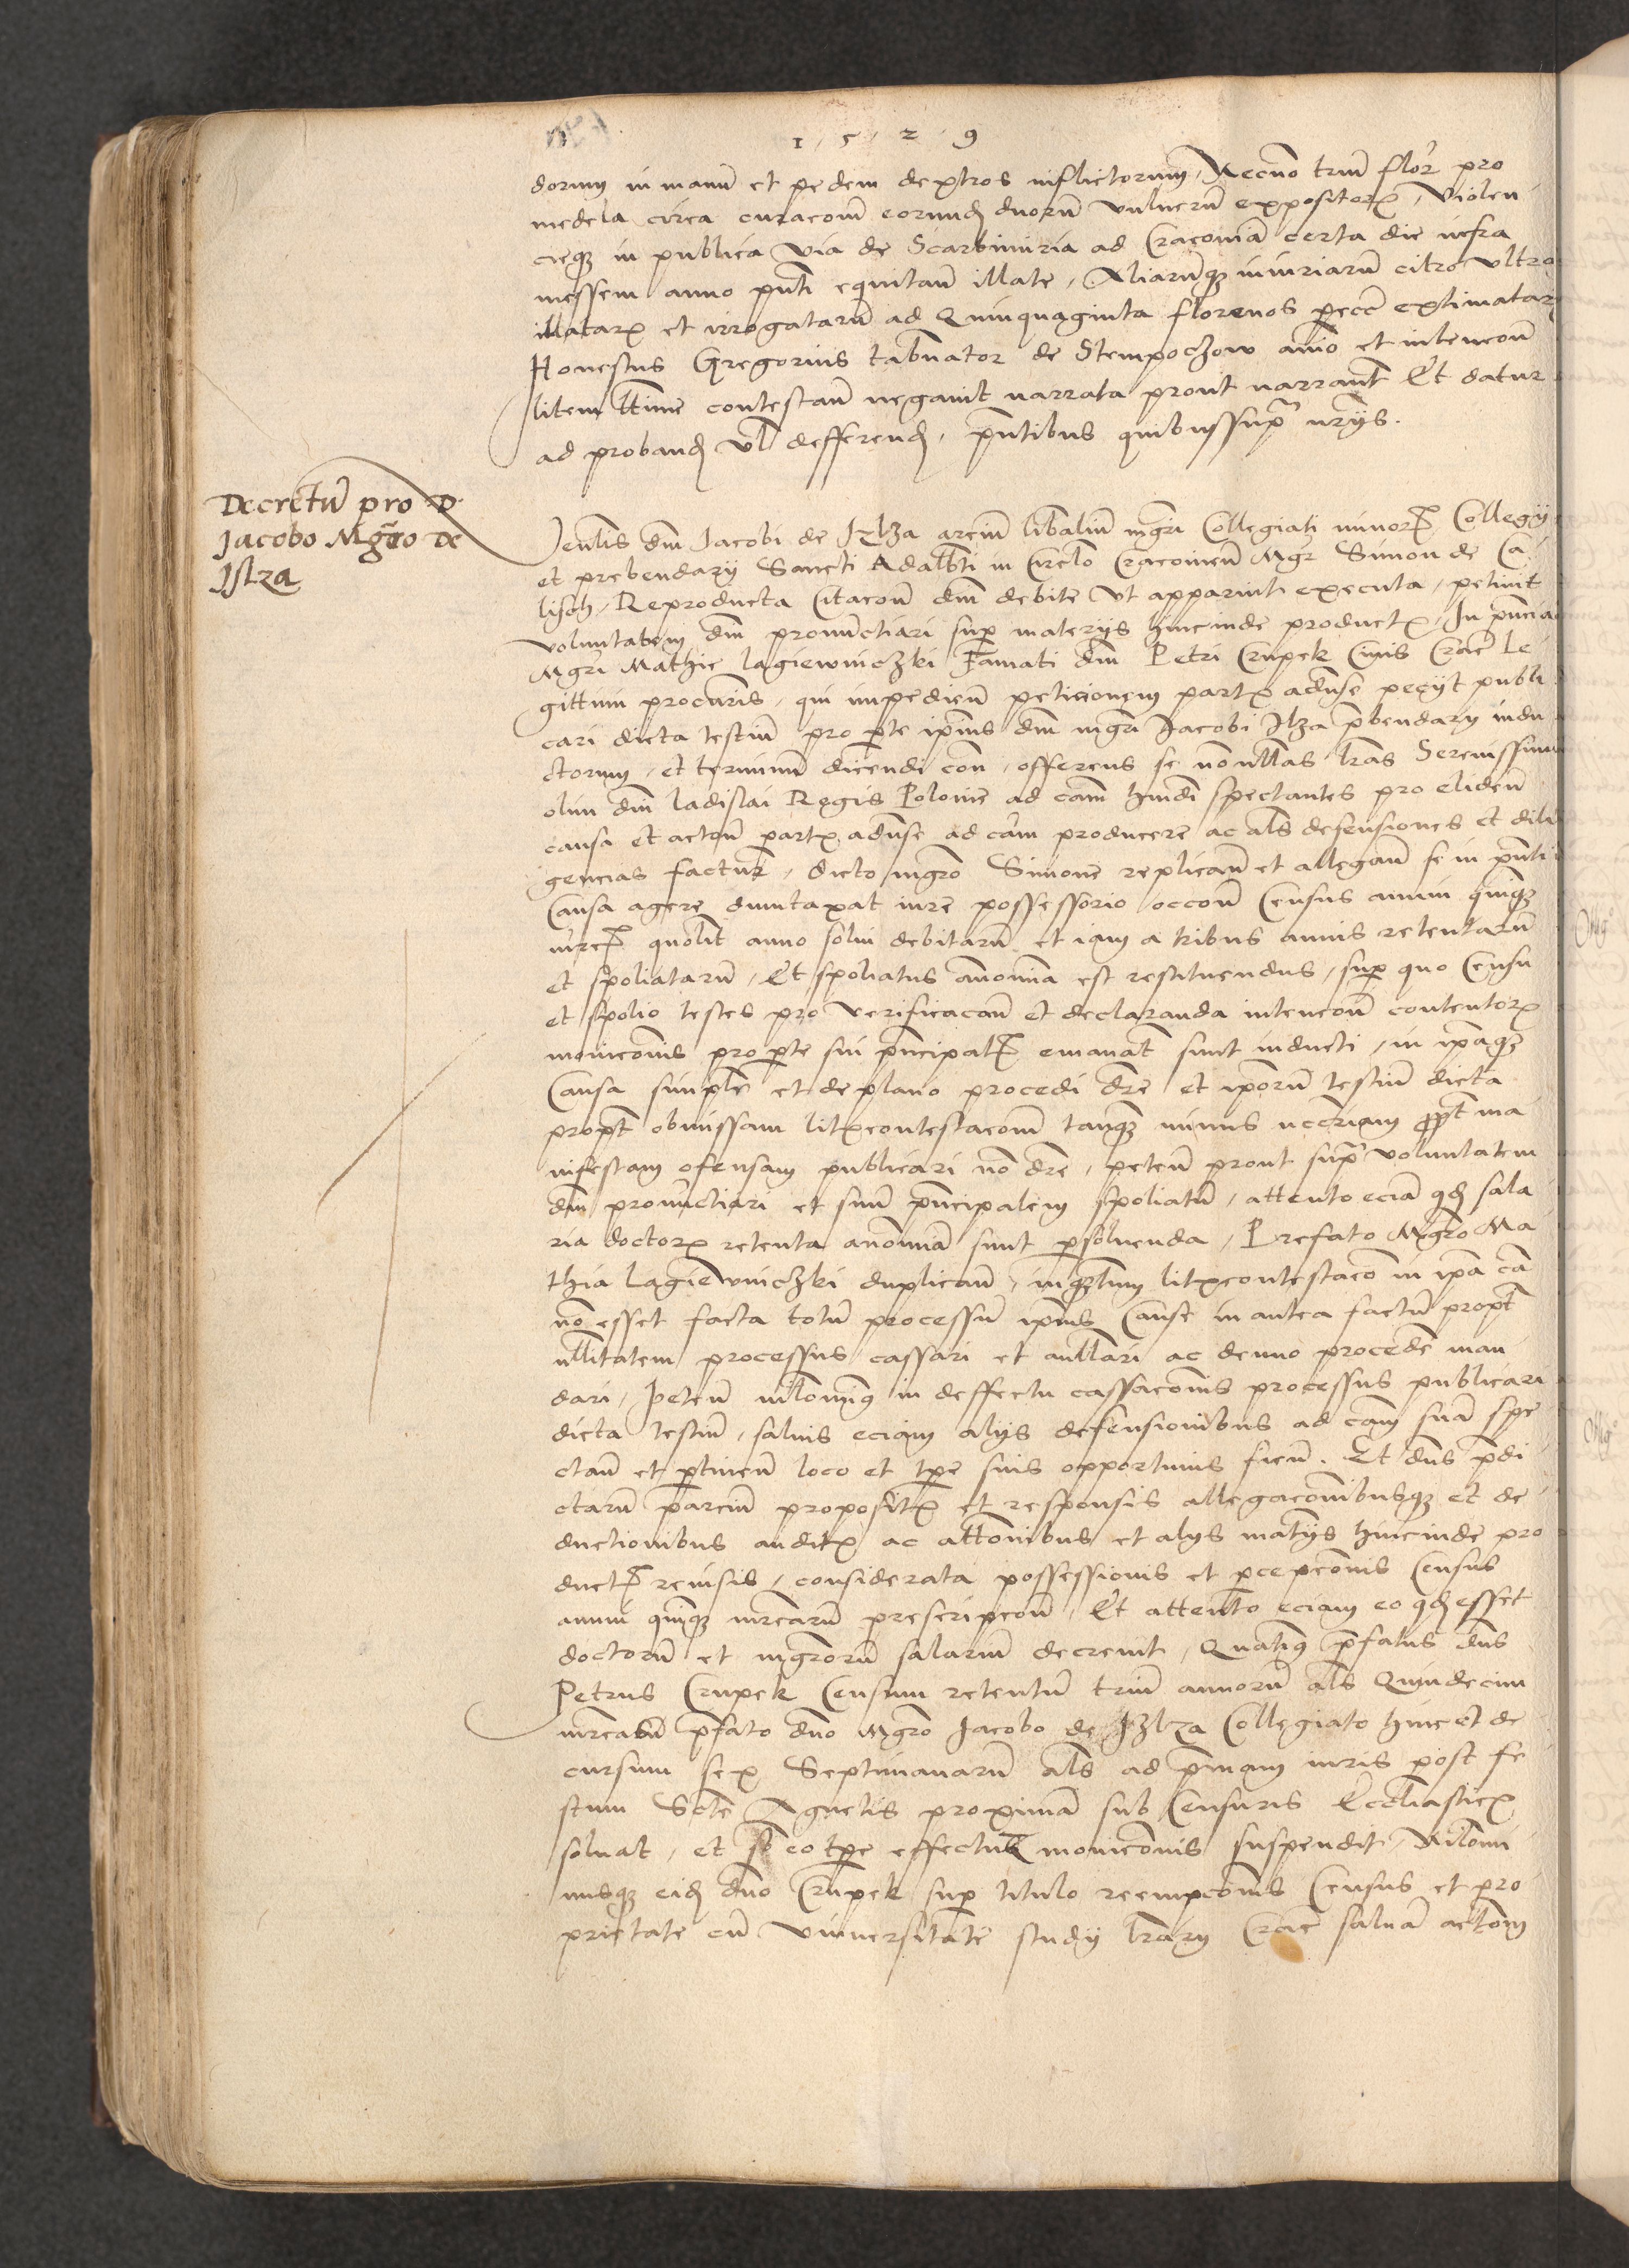 1 5 2 9
dorum in manu et pedem dextros inflictorum, Necno triu flor pro
medela circa curacom eorund duoru vulneru expositor, violen
cieq in publica via de Scarbimiria ad Cracouia certa die infra
messem anno pnti equitan illate, Aliarumq iniuriaru citro vltro
illatar et irrogataru ad Quinquaginta florenos pecc extimatar
Honestus Gregorius tabnator de Stempoczow aio et intencom
litem ttime contestan negauit narrata prout narrant Et datur
ad proband vl defferend, pntibus quibussup nrys.
Decretu pro D
Jacobo Mgro de
Jslza
Jentis dni Jacobi de Jlza arciu libaliu mgri Collegiati minor Collegij
et prebendarij Sancti Adalbti in Circlo Cracouien Mgr Simon de Ca
lisch, Reproducta Citacom dni debite vt apparuit executa, petiuit
voluntatem dni pronunctiari sup materijs hincinde product, In pncia
Mgri Mathie Lagiewniczki Famati dni Petri Crupek Ciuis Crac Le
gittimi procuris, qui impedien peticionem part aduse peciit publi
cari dicta testium pro pte ipius dni mgri Jacobi Jlza pbendarij indu
ctorum, et terminu dicendi con, offerens se nonullas lras Serenissimi
olim dni Ladislai Regis Polonie ad cam hmdi spectantes pro eliden
causa et actom part aduse ad cam producere ac als defensiones et dili
gencias factur, dicto mgro Simone replican et allegan se in pnti
Causa agere dumtaxat iure possessorio occon Census annui quinq
mrc quolt anno solui debitaru et iam a tribus annis retentaru
et spoliataru, Et spoliatus anomia est restituendus, sup quo Censu
et spolio testes pro verificacom et declaranda intencom contentor
moniconis pro pte sui pncipal emanat sunt inducti, in ipaq
Causa simplr et de plano procedi dre et iporu testiu dicta
propt obmissam litcontestacom tanq minus ncriam ppt ma
nifestam ofensam publicari no dre, peten prout sup voluntatem
dni pronuctiari et suu pncipalem spoliatu, attento ecia qd sala
ria doctor retenta anomia sunt psoluenda, Prefato Mgro Ma
thia Lagiewniczki duplican, inqtum litcontestaco in ipa ca
no esset facta totu processu ipius Cause in antea factu propt
nllitatem processus cassari et anllari ac denuo procede man
dari, peten nilominq in deffectu cassaconis processus publicari
dicta testiu, saluis eciam alijs defensionibus ad cam sua spe
ctan et ptinen loco et tpe suis opportunis fien. Et dns pdi
ctaru parciu proposit et responsis allegaconibusq et de
ductionibus audit ac attonibus et alijs matijs hincinde pro
duct reuisis, considerata possessionis et pcepconis Census
annui quinq mrcaru prescripcom, Et attento eciam eo qd esset
doctoru et mgroru salariu decreuit, Quatinq pfatus dns
Petrus Crupek Censum retentu triu annoru als Quindecim
mrcaru pfato dno Mgro Jacobo de Jlza Collegiato hinc et de
cursum sex Septimanaru als ad pmam iuris post fe
stum Scte Agnetis proxima sub Censuris Ecclliastic
soluat, et p eo tpe effectu moniconis suspendit, Nilomi
nusq eid dno Crupek sup titulo reempconis Census et pro
prietate cu vniuersitate studij lrarij Crac salua actom